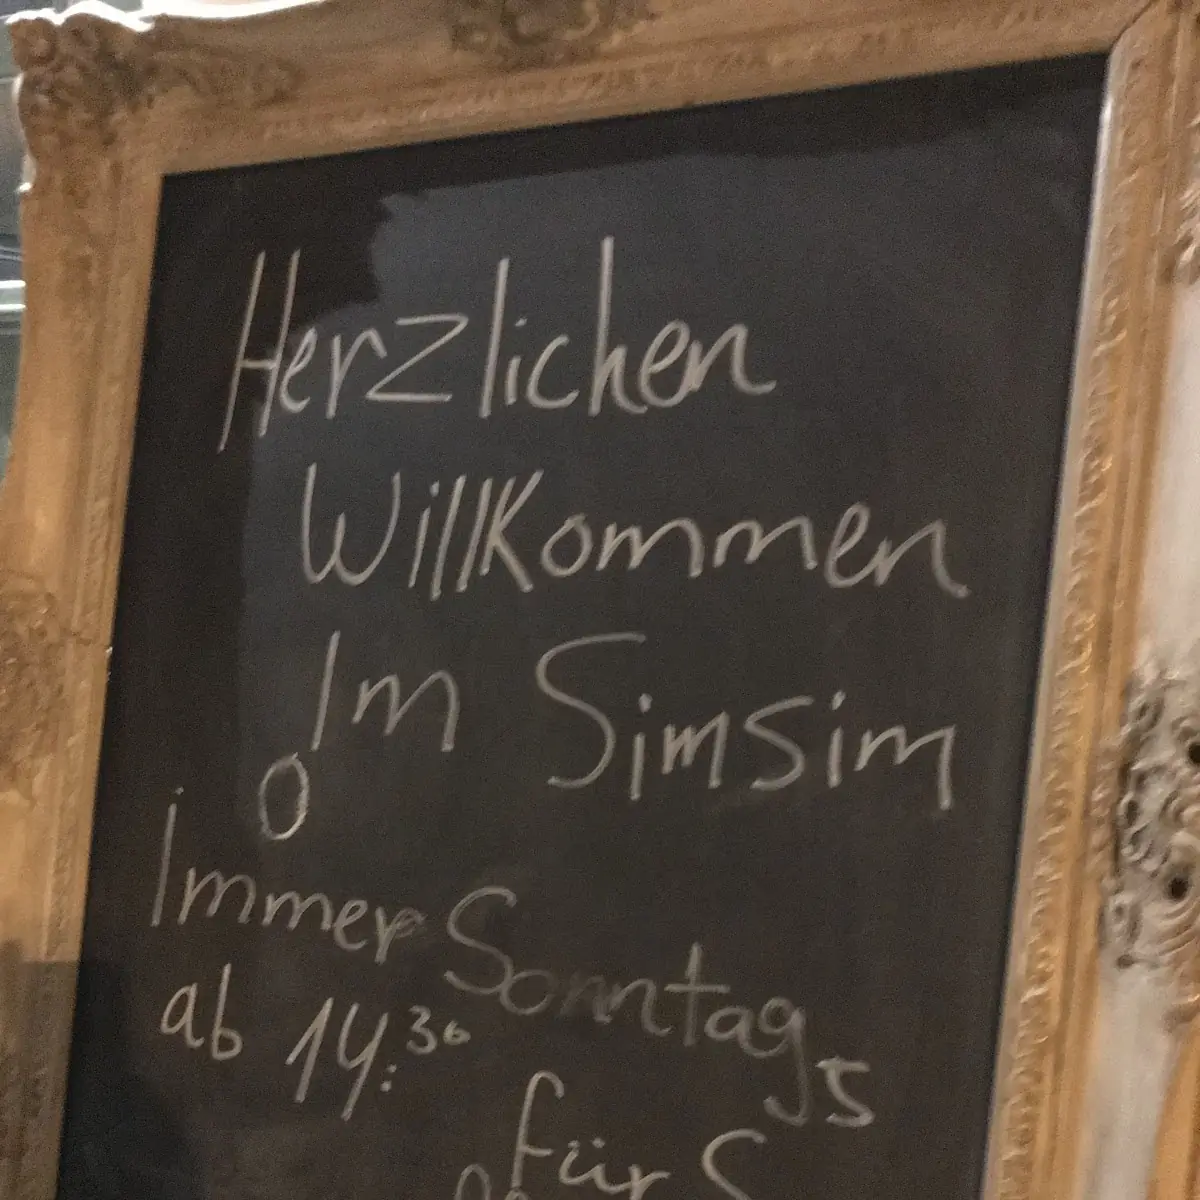 Herzlichen
Willkommen
Im Simsim
o
Immer Sonntags
ab 14:30
für